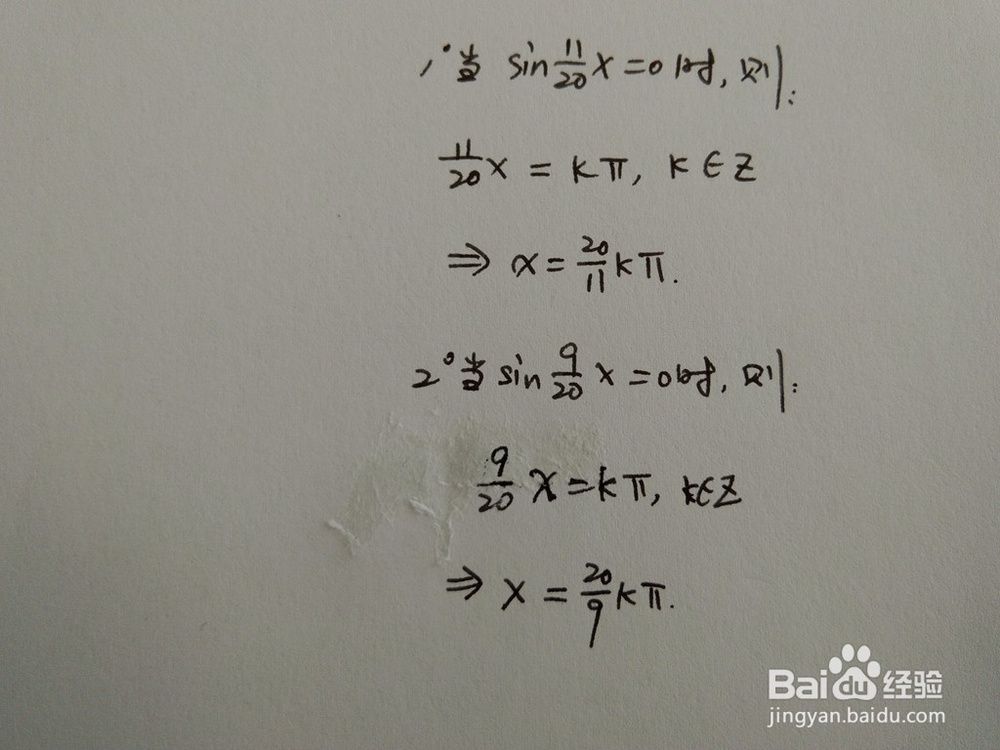 1°当 sin 11/20 x = 0时, 则:
11/20 x = kπ, k∈Z
⇒ x = 20/11 kπ.
2°当 sin 9/20 x = 0时, 则:
9/20 x = kπ, k∈Z
⇒ x = 20/9 kπ.
Baidu 经验
jingyan.baidu.com